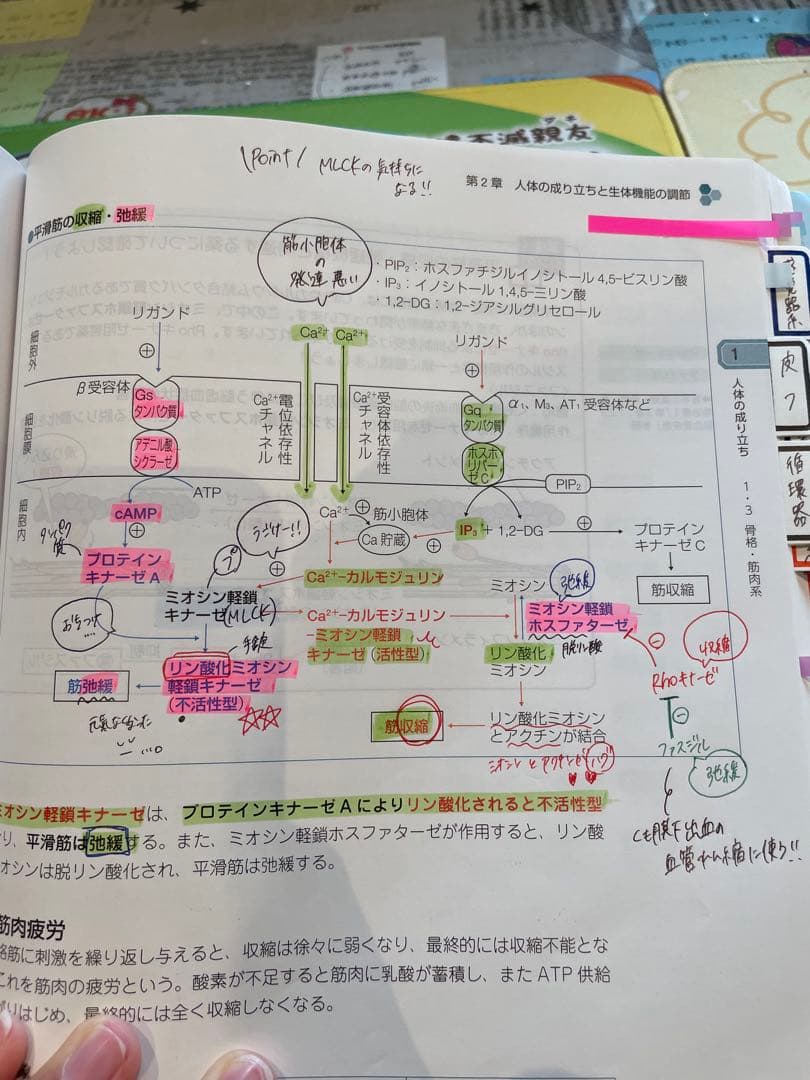 不滅親友
\Point/ MLCKの気持ちに
なる!!
第2章 人体の成り立ちと生体機能の調節
●平滑筋の収縮・弛緩
筋小胞体
の
発達悪い
・PIP₂:ホスファチジルイノシトール 4,5-ビスリン酸
・IP₃:イノシトール 1,4,5-三リン酸
・1,2-DG:1,2-ジアシルグリセロール
リガンド
Ca²⁺ Ca²⁺
リガンド
細胞外
⊕
⊕
β受容体
Gs
タンパク質
アデニル酸
シクラーゼ
Ca²⁺チャネル
電位依存性
Ca²⁺チャネル
受容体依存性
Gq
タンパク質
ホスホ
リパー
ゼC
α₁、M₃、AT₁ 受容体など
細胞膜
PIP₂
ATP
細胞内
cAMP
⊕
タンパク
質
プロテイン
キナーゼA
Ca²⁺
⊕
筋小胞体
Ca 貯蔵
⊕
IP₃ + 1,2-DG
⊕
プロテイン
キナーゼC
筋収縮
ラジャー!!
⊕
Ca²⁺–カルモジュリン
ミオシン軽鎖
キナーゼ(MLCK)
Ca²⁺–カルモジュリン
–ミオシン軽鎖
キナーゼ(活性型)
ミオシン
弛緩
ミオシン軽鎖
ホスファターゼ
脱リン酸
リン酸化
ミオシン
⊖
収縮
Rhoキナーゼ
⊖
ファスジル
弛緩
くも膜下出血の
血管れん縮に使う!!
リン酸化ミオシン
軽鎖キナーゼ
(不活性型)
筋弛緩
元気なくなった
筋収縮
リン酸化ミオシン
とアクチンが結合
ミオシンとアクチンがハグ
1
人体の成り立ち
1・3 骨格・筋肉系
皮フ
循環器
ミオシン軽鎖キナーゼは、プロテインキナーゼAによりリン酸化されると不活性型
り、平滑筋は弛緩する。また、ミオシン軽鎖ホスファターゼが作用すると、リン酸
オシンは脱リン酸化され、平滑筋は弛緩する。
筋肉疲労
格筋に刺激を繰り返し与えると、収縮は徐々に弱くなり、最終的には収縮不能とな
これを筋肉の疲労という。酸素が不足すると筋肉に乳酸が蓄積し、また ATP 供給
がりはじめ、最終的には全く収縮しなくなる。